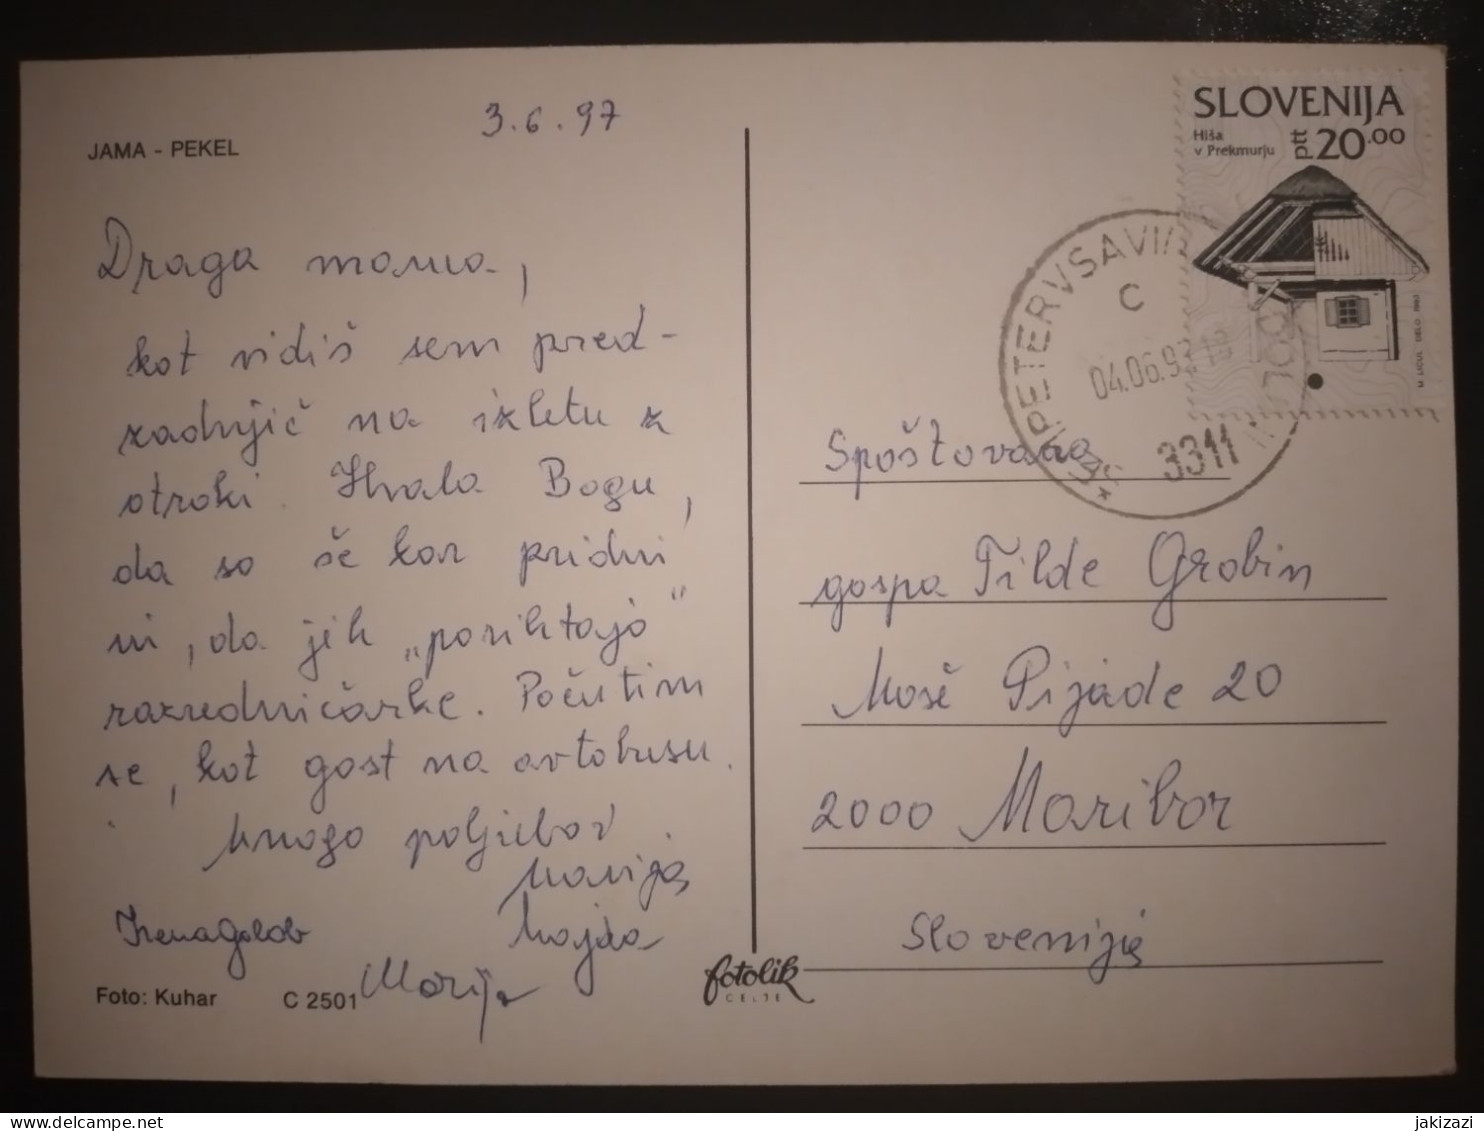 3.6.97
JAMA - PEKEL
Draga mama,
kot vidiš sem pred-
zadnjič na izletu z
otroki. Hvala Bogu,
da so še kar pridni
ni, da jih „porihtajo"
razredničarke. Počutim
se, kot gost na avtobusu.
Mnogo poljubov
Marija
Irena Golob
Majda
Marija
Foto: Kuhar
C 2501
fotolik
CELJE
SLOVENIJA
Hiša
v Prekmurju
ptt 20.00
M. LICUL DELO 1993
PETER V SAVI
C
04.06.97 18
3311
Spoštovana
gospa Tilde Grobin
Moše Pijade 20
2000 Maribor
Slovenija
delcampe.net
jakizazi